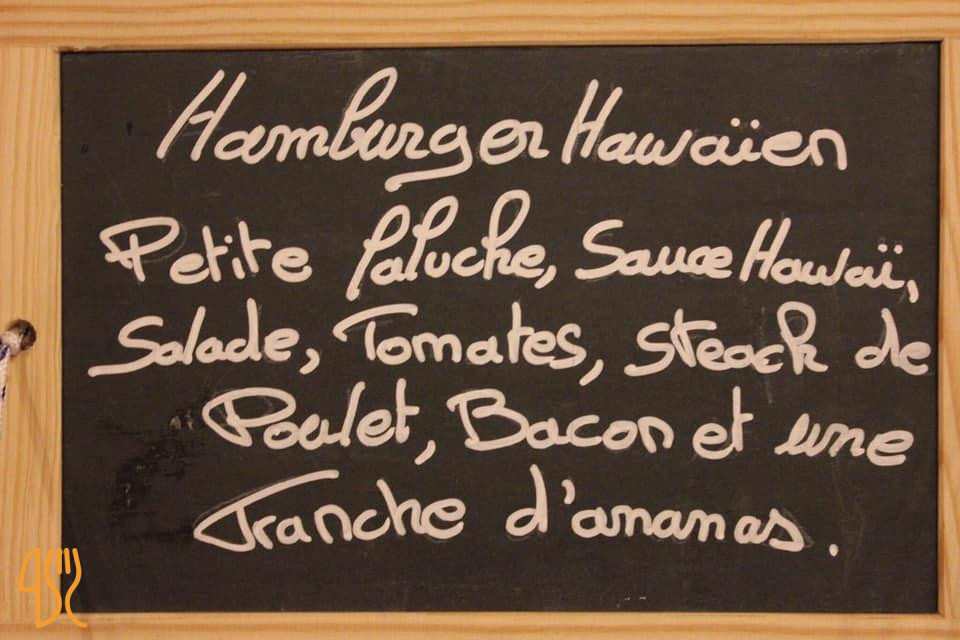 Hamburger Hawaïen
Petite Paluche, Sauce Hawaï,
Salade, Tomates, Steack de
Poulet, Bacon et une
Tranche d'ananas.